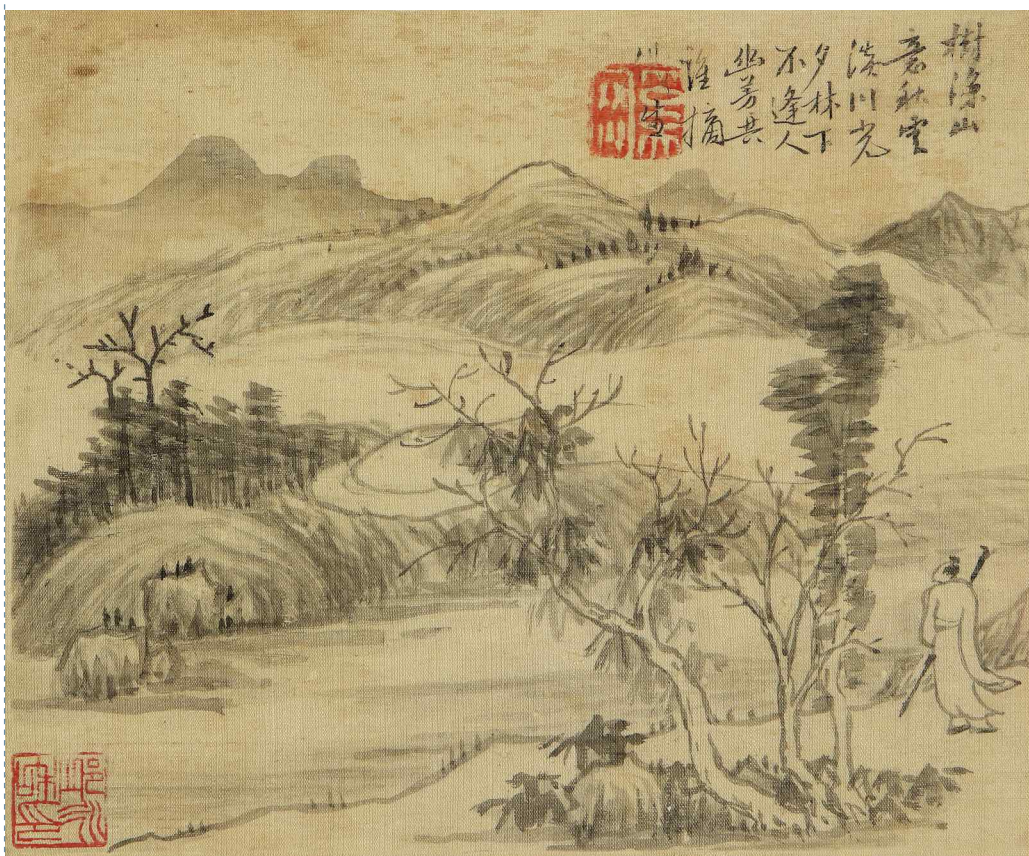 樹涼山
意秋雲
淡川光
夕林下
不逢人
幽芳共
誰摘
生